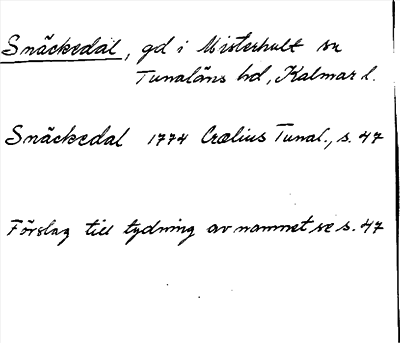 Snäckedal, gd i Misterhult sn
Tunaläns hd, Kalmar l.
Snäckedal 1774 Crælius Tunal., s. 47
Förslag till tydning av namnet se s. 47